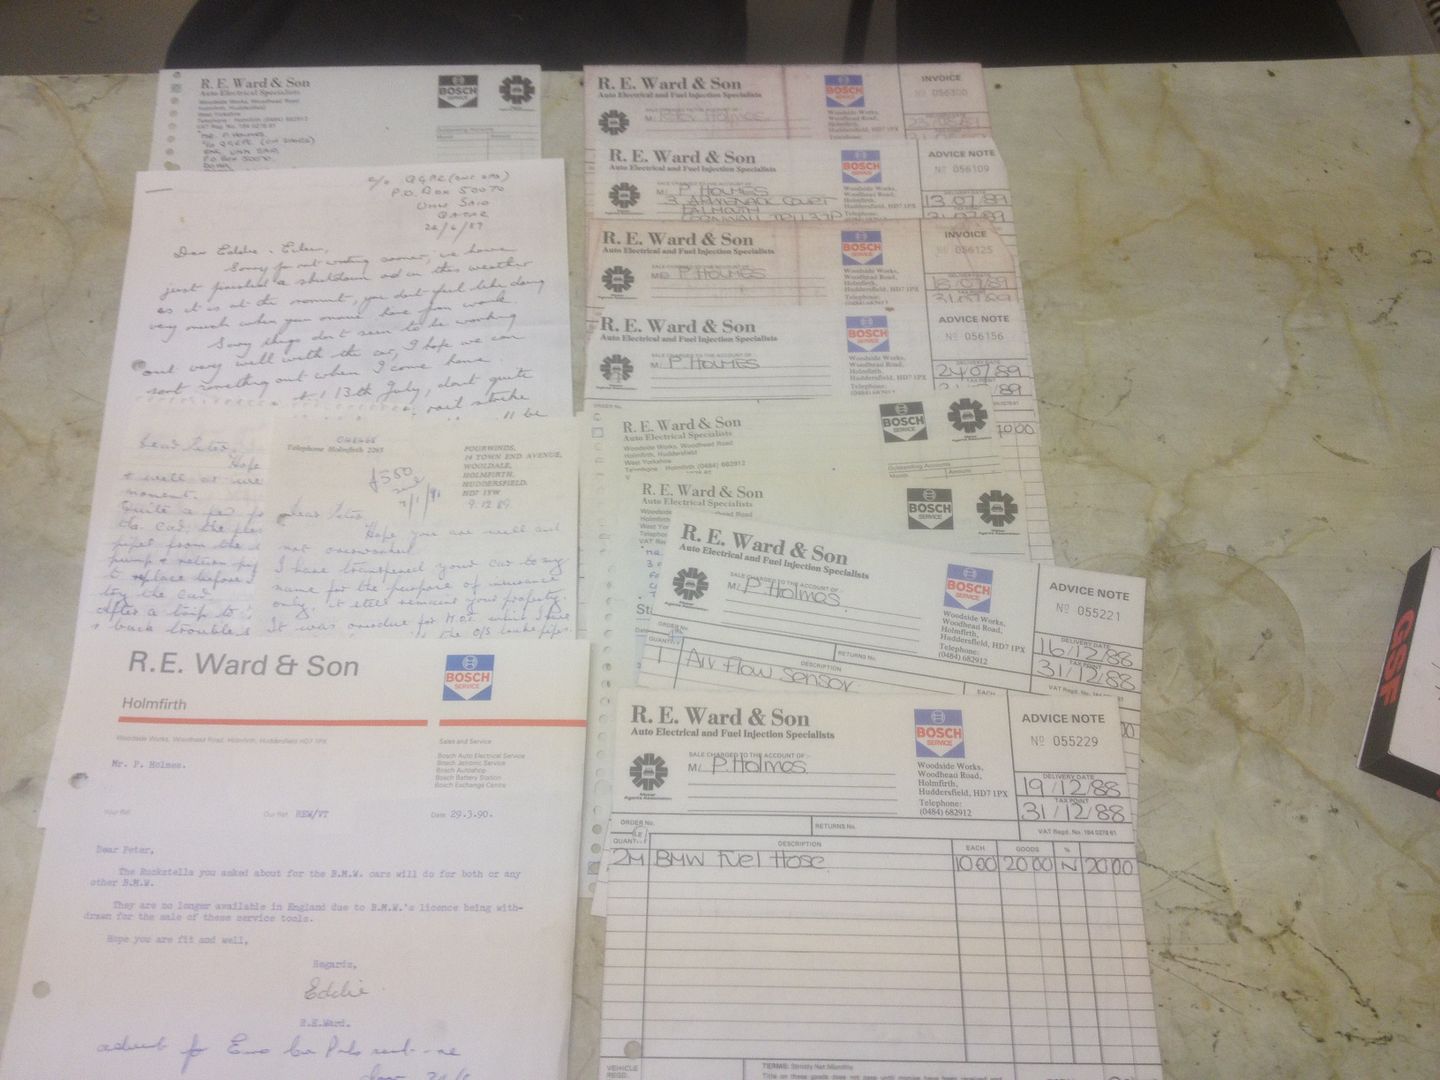 R. E. Ward & Son
Auto Electrical Specialists
Woodside Works, Woodhead Road
Holmfirth, Huddersfield
West Yorkshire
Telephone: Holmfirth (0484) 682912
VAT Reg. No. 184 0278 61
BOSCH
SERVICE
MR. P. HOLMES
UMM SAID
PO BOX 50070
DOHA
c/o QGPC
P.O. BOX 50070
UMM SAID
QATAR
26/6/89
Dear Eddie & Eileen,
Sorry for not writing sooner, we have
just finished a shutdown and in this weather
as it is at the moment, you don't feel like doing
very much when you come home from work.
Sorry things don't seem to be working
out very well with the car, I hope we can
sort something out when I come home.
13th July, don't quite
rail strike
'll be
Dear Peter,
Hope
& well at
moment.
Quite a
the car, the
pipes from the
pump & return
to replace before
try the car.
After a trip to
back trouble
Telephone Holmfirth 2265
FOURWINDS,
14 TOWN END AVENUE,
WOOLDALE,
HOLMFIRTH,
HUDDERSFIELD.
HD7 1YW
9.12.89
£380
Dear Peter,
Hope you are well and
not overworked.
I have transfered your car to my
name for the purpose of insurance
only, it still remains your property.
It was overdue for M.O.T.
the O/S brake pipes.
R.E. Ward & Son
BOSCH
SERVICE
Holmfirth
Woodside Works, Woodhead Road, Holmfirth, Huddersfield HD7 1PX
Sales and Service
Bosch Auto Electrical Service
Bosch Jetronic Service
Bosch Autoshop
Bosch Battery Station
Bosch Exchange Centre
Mr. P. Holmes.
Your Ref.
Our Ref. REW/VT
Date 29.3.90.
Dear Peter,
The Rockstells you asked about for the B.M.W. cars will do for both or any
other B.M.W.
They are no longer available in England due to B.M.W.'s licence being with-
drawn for the sale of these service tools.
Hope you are fit and well,
Regards,
Eddie
R.E.Ward.
R. E. Ward & Son
Auto Electrical and Fuel Injection Specialists
SALE CHARGED TO THE ACCOUNT OF
BOSCH
SERVICE
Woodside Works,
Woodhead Road,
Holmfirth,
Huddersfield, HD7 1PX
Telephone:
INVOICE
No 056100
R. E. Ward & Son
Auto Electrical and Fuel Injection Specialists
SALE CHARGED TO THE ACCOUNT OF
M P HOLMES
3 ARWENACK COURT
FALMOUTH
CORNWALL
BOSCH
SERVICE
Woodside Works,
Woodhead Road,
Holmfirth,
Huddersfield, HD7 1PX
Telephone:
ADVICE NOTE
No 056109
DELIVERY DATE
13/07/89
31/07/89
R. E. Ward & Son
Auto Electrical and Fuel Injection Specialists
SALE CHARGED TO THE ACCOUNT OF
P HOLMES
BOSCH
SERVICE
Woodside Works,
Woodhead Road,
Holmfirth,
Huddersfield, HD7 1PX
Telephone:
INVOICE
No 056125
DELIVERY DATE
TAX POINT
31/07/89
R. E. Ward & Son
Auto Electrical and Fuel Injection Specialists
SALE CHARGED TO THE ACCOUNT OF
M P HOLMES
BOSCH
SERVICE
Woodside Works,
Woodhead Road,
Holmfirth,
Huddersfield, HD7 1PX
Telephone:
ADVICE NOTE
No 056156
DELIVERY DATE
24/07/89
TAX POINT
ORDER No.
R. E. Ward & Son
Auto Electrical Specialists
Woodside Works, Woodhead Road
Holmfirth, Huddersfield
West Yorkshire
Telephone: Holmfirth (0484) 682912
BOSCH
SERVICE
Outstanding Accounts
Month
Amount
R. E. Ward & Son
Auto Electrical Specialists
BOSCH
SERVICE
R. E. Ward & Son
Auto Electrical and Fuel Injection Specialists
SALE CHARGED TO THE ACCOUNT OF
M P Holmes
BOSCH
SERVICE
Woodside Works,
Woodhead Road,
Holmfirth,
Huddersfield, HD7 1PX
Telephone:
(0484) 682912
ADVICE NOTE
No 055221
DELIVERY DATE
16/12/88
TAX POINT
31/12/88
ORDER No.
RETURNS No.
QUANTITY
DESCRIPTION
EACH
1 Air Flow Sensor
R. E. Ward & Son
Auto Electrical and Fuel Injection Specialists
SALE CHARGED TO THE ACCOUNT OF :-
M P. Holmes
BOSCH
SERVICE
Woodside Works,
Woodhead Road,
Holmfirth,
Huddersfield, HD7 1PX
Telephone:
(0484) 682912
ADVICE NOTE
No 055229
DELIVERY DATE
19/12/88
TAX POINT
31/12/88
ORDER No.
RETURNS No.
VAT Regd. No. 184 0278 61
DESCRIPTION
EACH
GOODS
%
2M BMW Fuel Hose 10.00 20.00 N 20.00
VEHICLE
REGD.
TERMS: Strictly Net Monthly
GSF